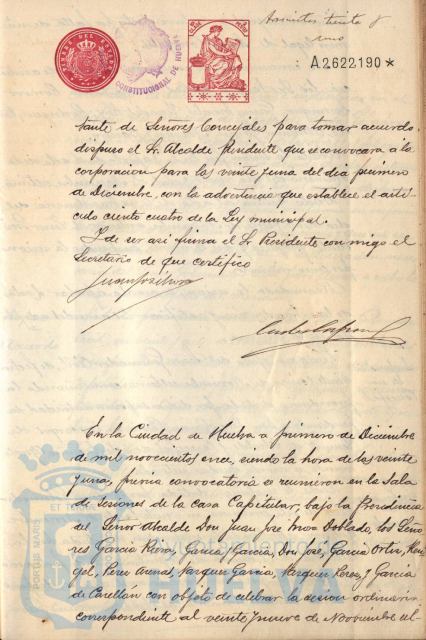 treinta y
uno
CONSTITUCIONAL DE HUELVA
A2622190*
tante de Señores Concejales para tomar acuerdo,
dispuso el Sr. Alcalde Presidente que se convocara a la
corporacion para las veinte y una del dia primero
de Diciembre, con la advertencia que establece el arti-
culo ciento cuatro de la Ley municipal.
Y de ser asi firma el Sr. Presidente con migo el
Secretario de que certifico
En la Ciudad de Huelva a primero de Diciembre
de mil novecientos once, siendo la hora de las veinte
y una, previa convocatoria se reunieron en la Sala
de sesiones de la casa Capitular, bajo la Presidencia
del Señor Alcalde Don Juan José Mora Doblado, los Seño-
res Garcia Garcia, Don José, Garcia Ortiz,
Perez Vazquez Garcia, Vazquez Perez, y Garcia
de Castellan con objeto de celebrar la sesion ordinaria
correspondiente al veinte y nueve de Noviembre ul-
PORTUS MARIS
ET